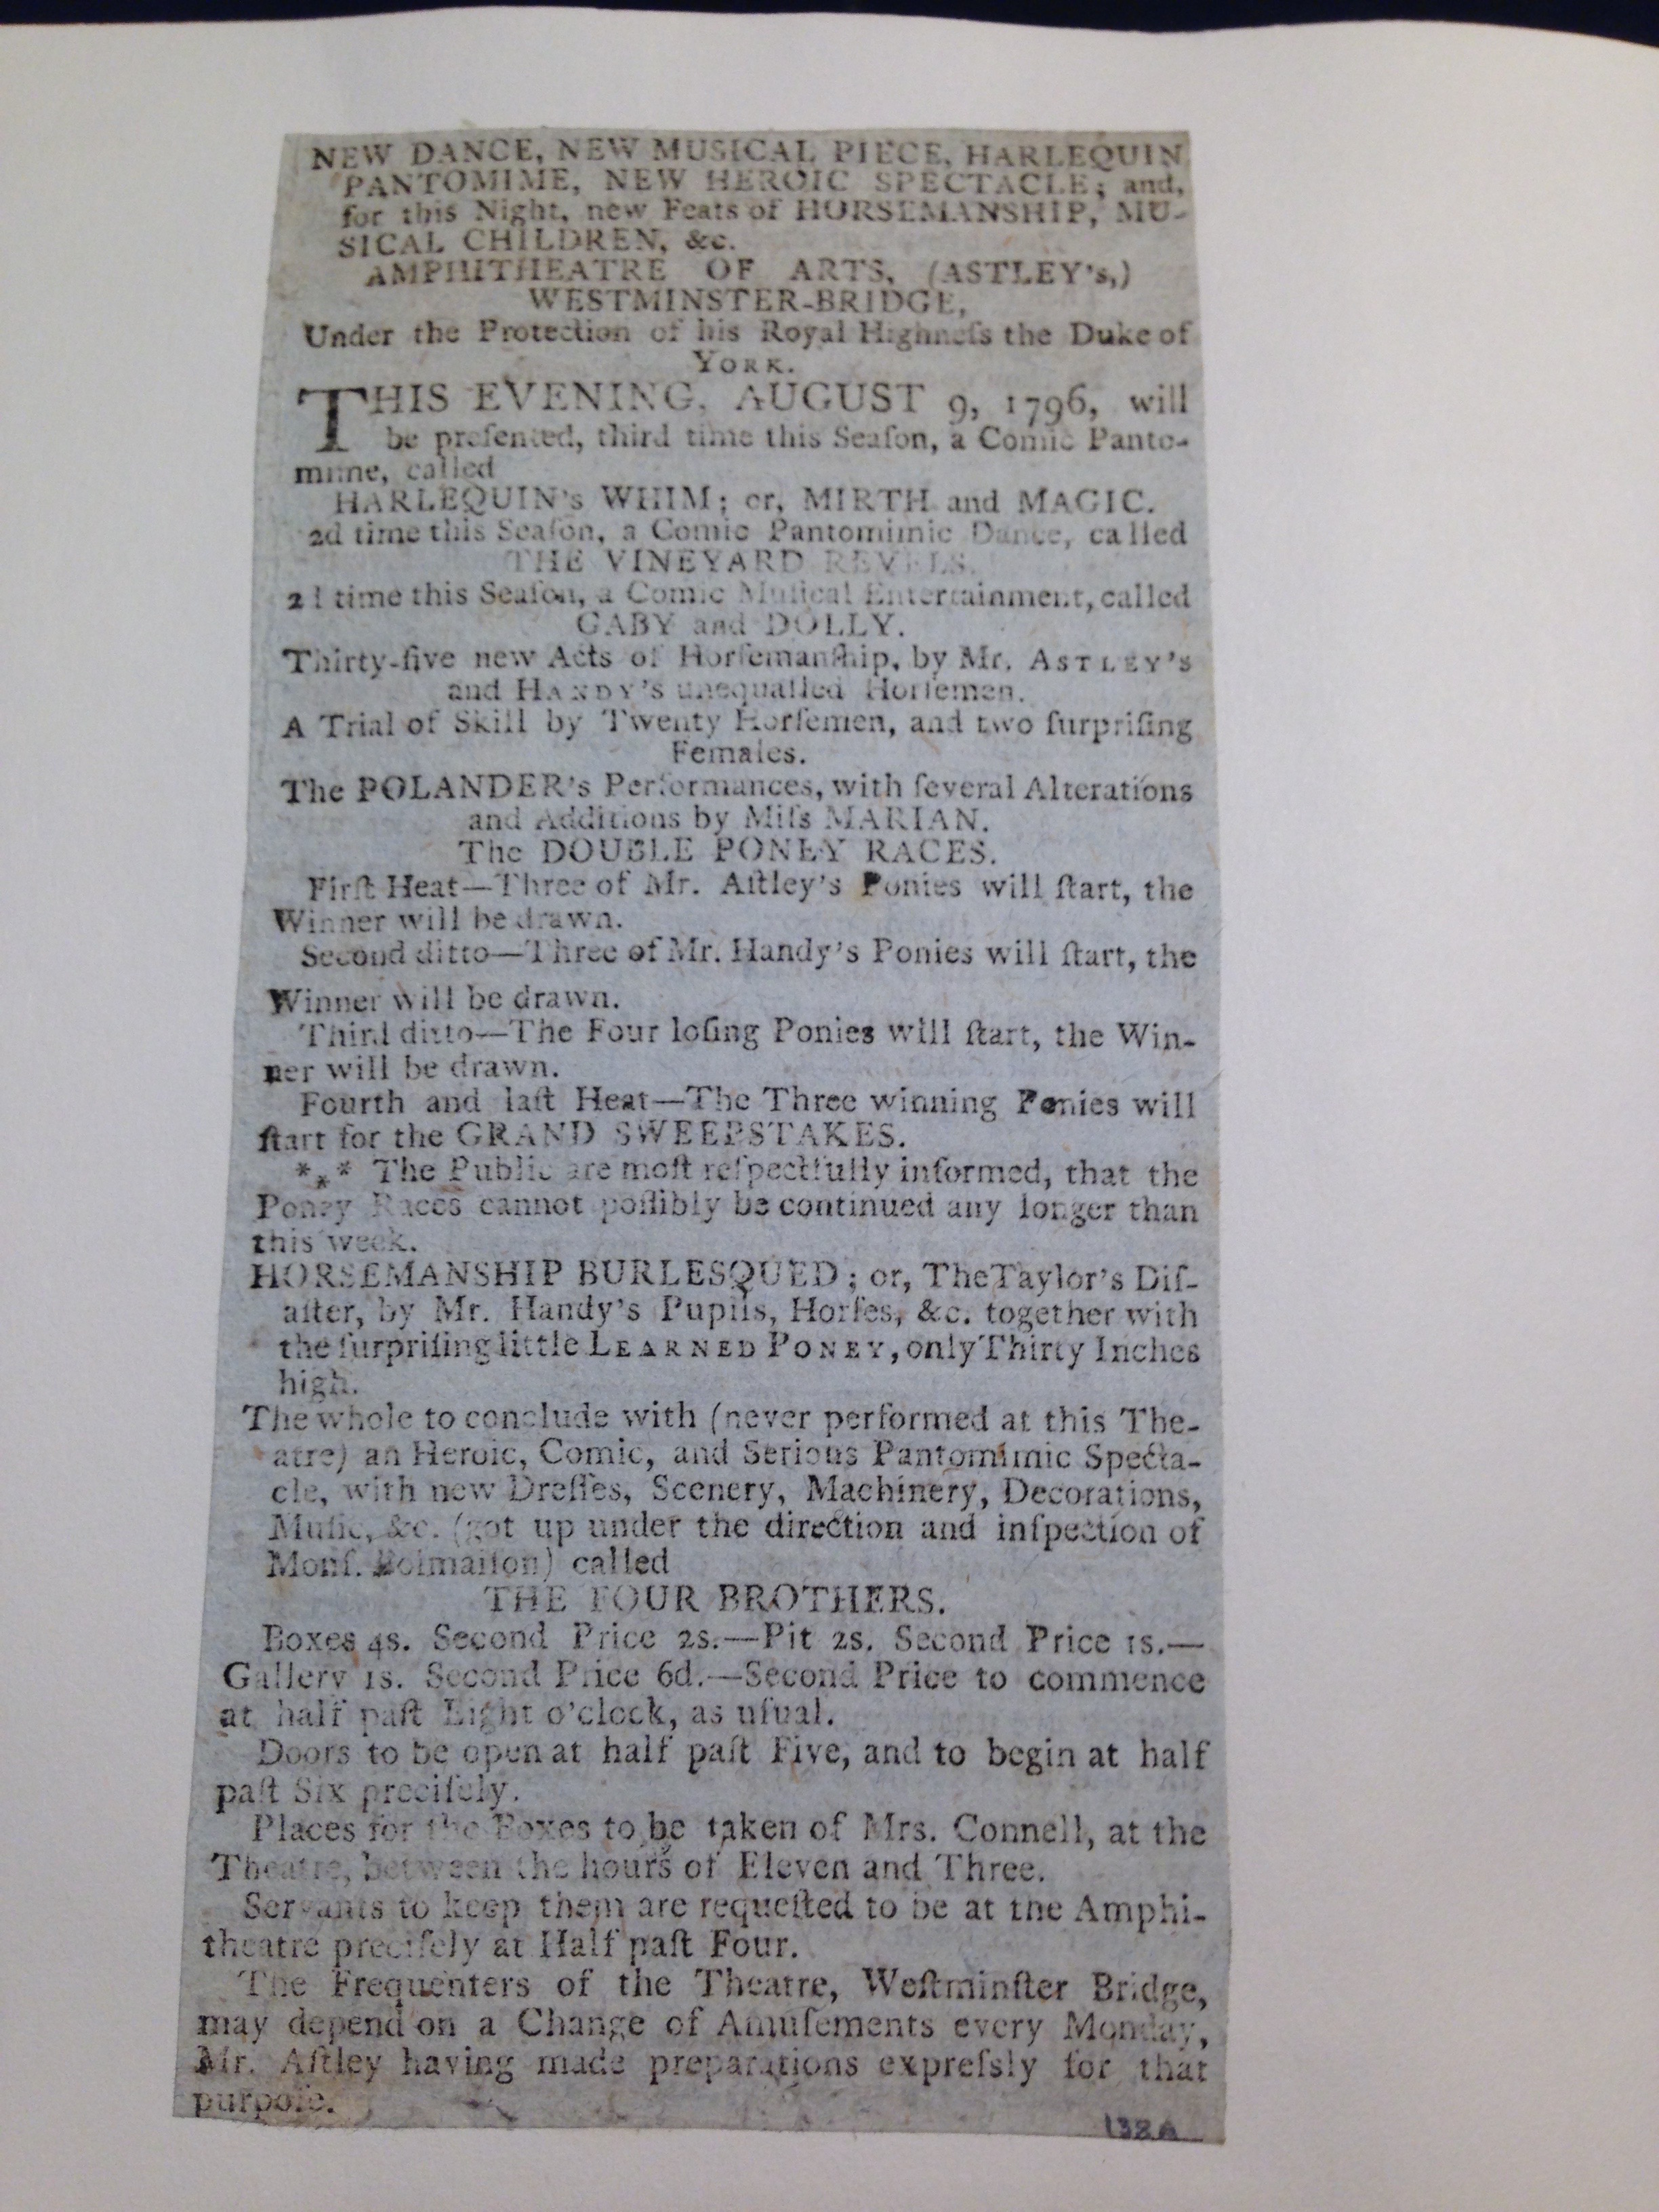 NEW DANCE, NEW MUSICAL PIECE, HARLEQUIN
PANTOMIME, NEW HEROIC SPECTACLE; and,
for this Night, new Feats of HORSEMANSHIP, MU-
SICAL CHILDREN, &c.
AMPHITHEATRE OF ARTS, (ASTLEY's,)
WESTMINSTER-BRIDGE,
Under the Protection of his Royal Highneſs the Duke of
YORK.
THIS EVENING, AUGUST 9, 1796, will
be preſented, third time this Seaſon, a Comic Panto-
mime, called
HARLEQUIN's WHIM; or, MIRTH and MAGIC.
2d time this Seaſon, a Comic Pantomimic Dance, called
THE VINEYARD REVELS.
2d time this Seaſon, a Comic Muſical Entertainment, called
GABY and DOLLY.
Thirty-five new Acts of Horſemanſhip, by Mr. ASTLEY's
and HANDY's unequalled Horſemen.
A Trial of Skill by Twenty Horſemen, and two ſurpriſing
Females.
The POLANDER's Performances, with ſeveral Alterations
and Additions by Miſs MARIAN.
The DOUBLE PONEY RACES.
Firſt Heat—Three of Mr. Aſtley's Ponies will ſtart, the
Winner will be drawn.
Second ditto—Three of Mr. Handy's Ponies will ſtart, the
Winner will be drawn.
Third ditto—The Four loſing Ponies will ſtart, the Win-
ner will be drawn.
Fourth and laſt Heat—The Three winning Ponies will
ſtart for the GRAND SWEEPSTAKES.
*⁎* The Public are moſt reſpectfully informed, that the
Poney Races cannot poſſibly be continued any longer than
this week.
HORSEMANSHIP BURLESQUED; or, The Taylor's Diſ-
aſter, by Mr. Handy's Pupils, Horſes, &c. together with
the ſurpriſing little LEARNED PONEY, only Thirty Inches
high.
The whole to conclude with (never performed at this The-
atre) an Heroic, Comic, and Serious Pantomimic Specta-
cle, with new Dreſſes, Scenery, Machinery, Decorations,
Muſic, &c. (got up under the direction and inſpection of
Monſ. Boimaiſon) called
THE FOUR BROTHERS.
Boxes 4s. Second Price 2s.—Pit 2s. Second Price 1s.—
Gallery 1s. Second Price 6d.—Second Price to commence
at half paſt Eight o'clock, as uſual.
Doors to be open at half paſt Five, and to begin at half
paſt Six preciſely.
Places for the Boxes to be taken of Mrs. Connell, at the
Theatre, between the hours of Eleven and Three.
Servants to keep them are requeſted to be at the Amphi-
theatre preciſely at Half paſt Four.
The Frequenters of the Theatre, Weſtminſter Bridge,
may depend on a Change of Amuſements every Monday,
Mr. Aſtley having made preparations expreſsly for that
purpoſe.